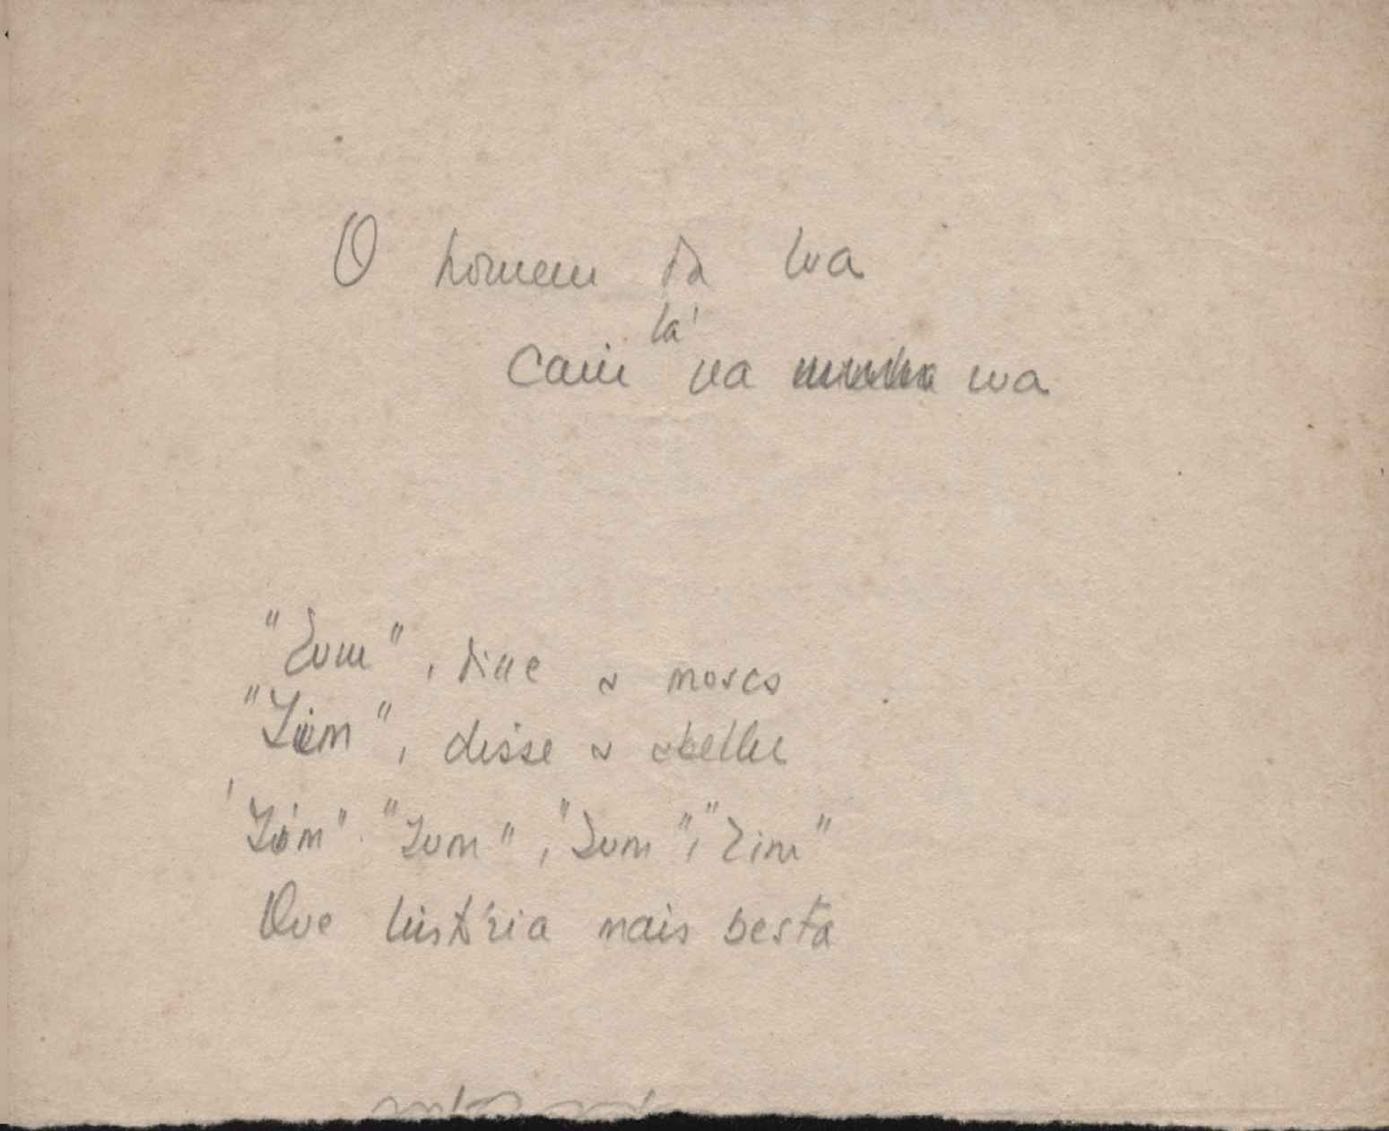 O homem da lua
lá
Caiu na rua
"Zum", disse a mosca
"Zim", disse a abelha
"Zim" "Zum", "Zum", "Zim"
Que história mais besta